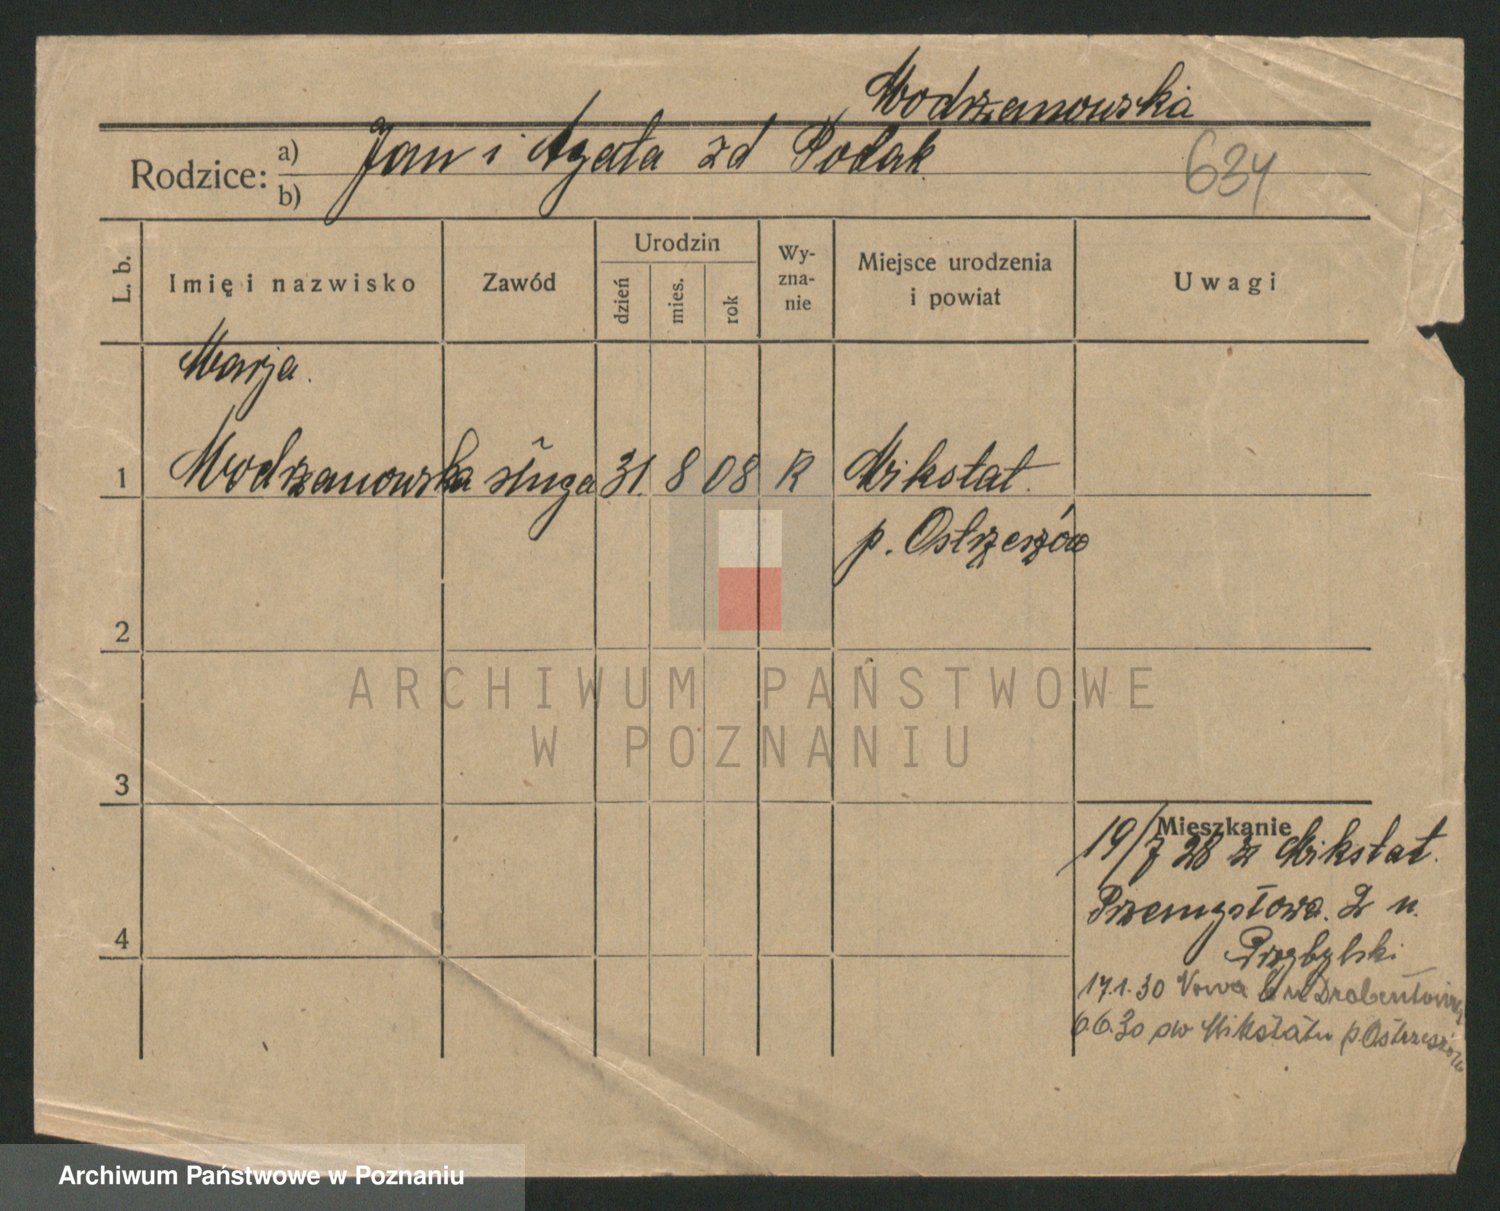 Modrzanowska
Rodzice: a) b) Jan i Agata zd Polak
634
L. b. Imię i nazwisko Zawód Urodzin dzień mies. rok Wyznanie Miejsce urodzenia i powiat Uwagi
Marja.
1 Modrzanowska sługa 31. 8 08 R Mikstat.
p. Ostrzeszów
2
3
4
Mieszkanie
19/7 28 z Mikstat.
Przemysłowa. 2 u.
Przybylski
17.1.30 Nowa 6 u
6.6.30 do Mikstatu p. Ostrzeszów
ARCHIWUM PAŃSTWOWE
W POZNANIU
Archiwum Państwowe w Poznaniu